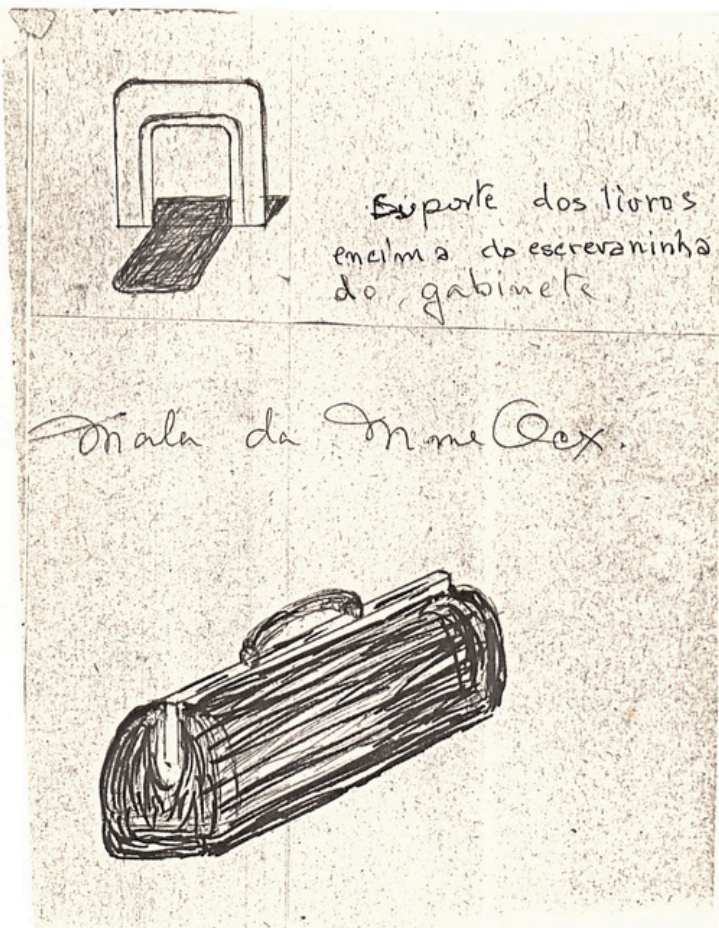 Suporte dos livros
encima da escrevaninha
do gabinete
Mala da Mme